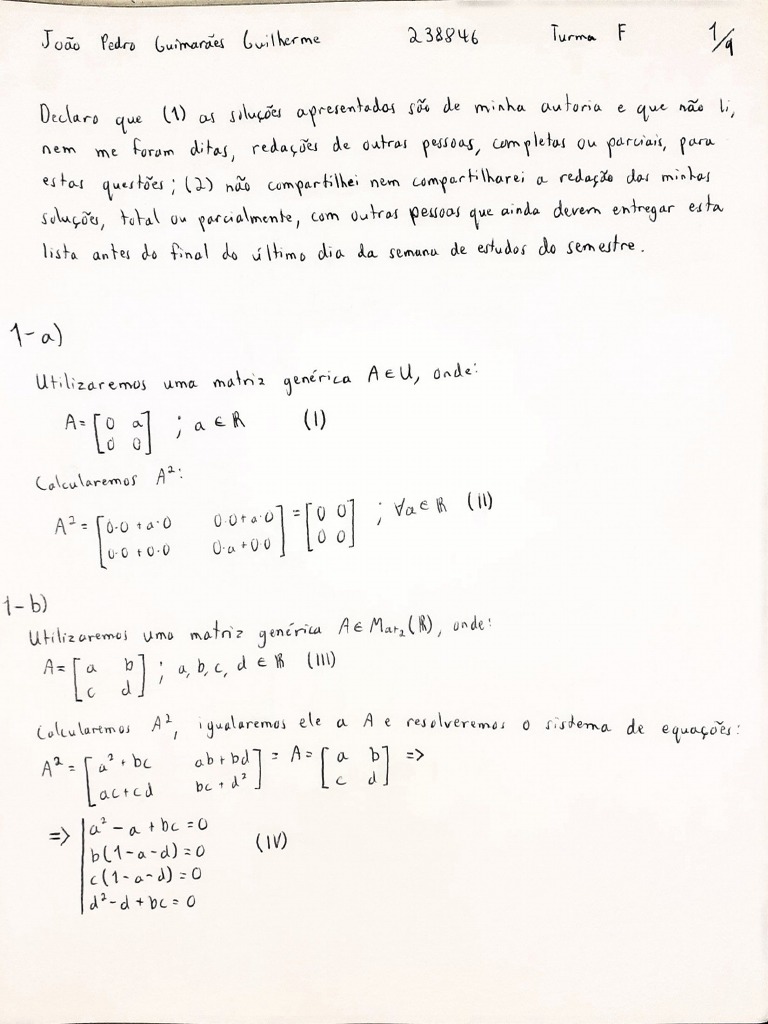 João Pedro Guimarães Guilherme 238846 Turma F 1/9
Declaro que (1) as soluções apresentadas são de minha autoria e que não li,
nem me foram ditas, redações de outras pessoas, completas ou parciais, para
estas questões; (2) não compartilhei nem compartilharei a redação das minhas
soluções, total ou parcialmente, com outras pessoas que ainda devem entregar esta
lista antes do final do último dia da semana de estudos do semestre.
1-a)
Utilizaremos uma matriz genérica A∈U, onde:
A=[0 a; 0 0] ; a ∈ ℝ (I)
Calcularemos A²:
A²=[0·0+a·0 0·0+a·0; 0·0+0·0 0·a+0·0]=[0 0; 0 0] ; ∀a∈ℝ (II)
1-b)
Utilizaremos uma matriz genérica A∈Mat₂(ℝ), onde:
A=[a b; c d] ; a,b,c,d ∈ ℝ (III)
Calcularemos A², igualaremos ele a A e resolveremos o sistema de equações:
A²=[a²+bc ab+bd; ac+cd bc+d²]=A=[a b; c d] =>
=> |a²-a+bc=0
b(1-a-d)=0 (IV)
c(1-a-d)=0
d²-d+bc=0